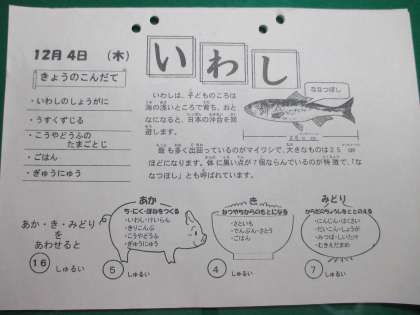 12月4日 (木)
いわし
きょうのこんだて
・いわしのしょうがに
・うすくずじる
・こうやどうふの
たまごとじ
・ごはん
・ぎゅうにゅう
いわしは、子どものころは
海の浅いところで育ち、おと
なになると、日本の沖合を回
遊します。
最も多く出回っているのがマイワシで、大きなものは25cm
ほどになります。体に黒い点が7個ならんでいるのが特徴で、「な
なつぼし」とも呼ばれています。
ななつぼし
25cm
あか・き・みどり
を
あわせると
16 しゅるい
あか
ち・にく・ほねをつくる
・いわし・けいらん
・きりこんぶ
・こうやどうふ
・ぎゅうにゅう
5 しゅるい
き
ねつやちからのもとになる
・さとう
・でんぷん・さとう
・ごはん
4 しゅるい
みどり
からだのちょうしをととのえる
・にんじん・はくさい
・だいこん・しょうが
・みつば・しいたけ
・むきえだまめ
7 しゅるい